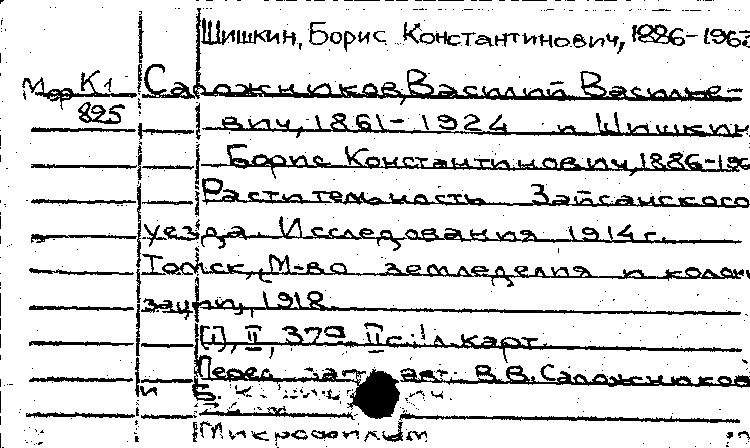 Шишкин, Борис Константинович, 1886-1963
Мор К1
895
Сапожников, Василий Василье-
вич, 1861-1924 и Шишкин
Борис Константинович, 1886-196
Растительность Зайсанского
уезда. Исследования 1914 г.
Томск, М-во земледелия и колони
зации, 1918.
[I], II, 379, II с.; л. карт.
Перед загл. авт.: В.В. Сапожников
и Б. К.
Микрофильм